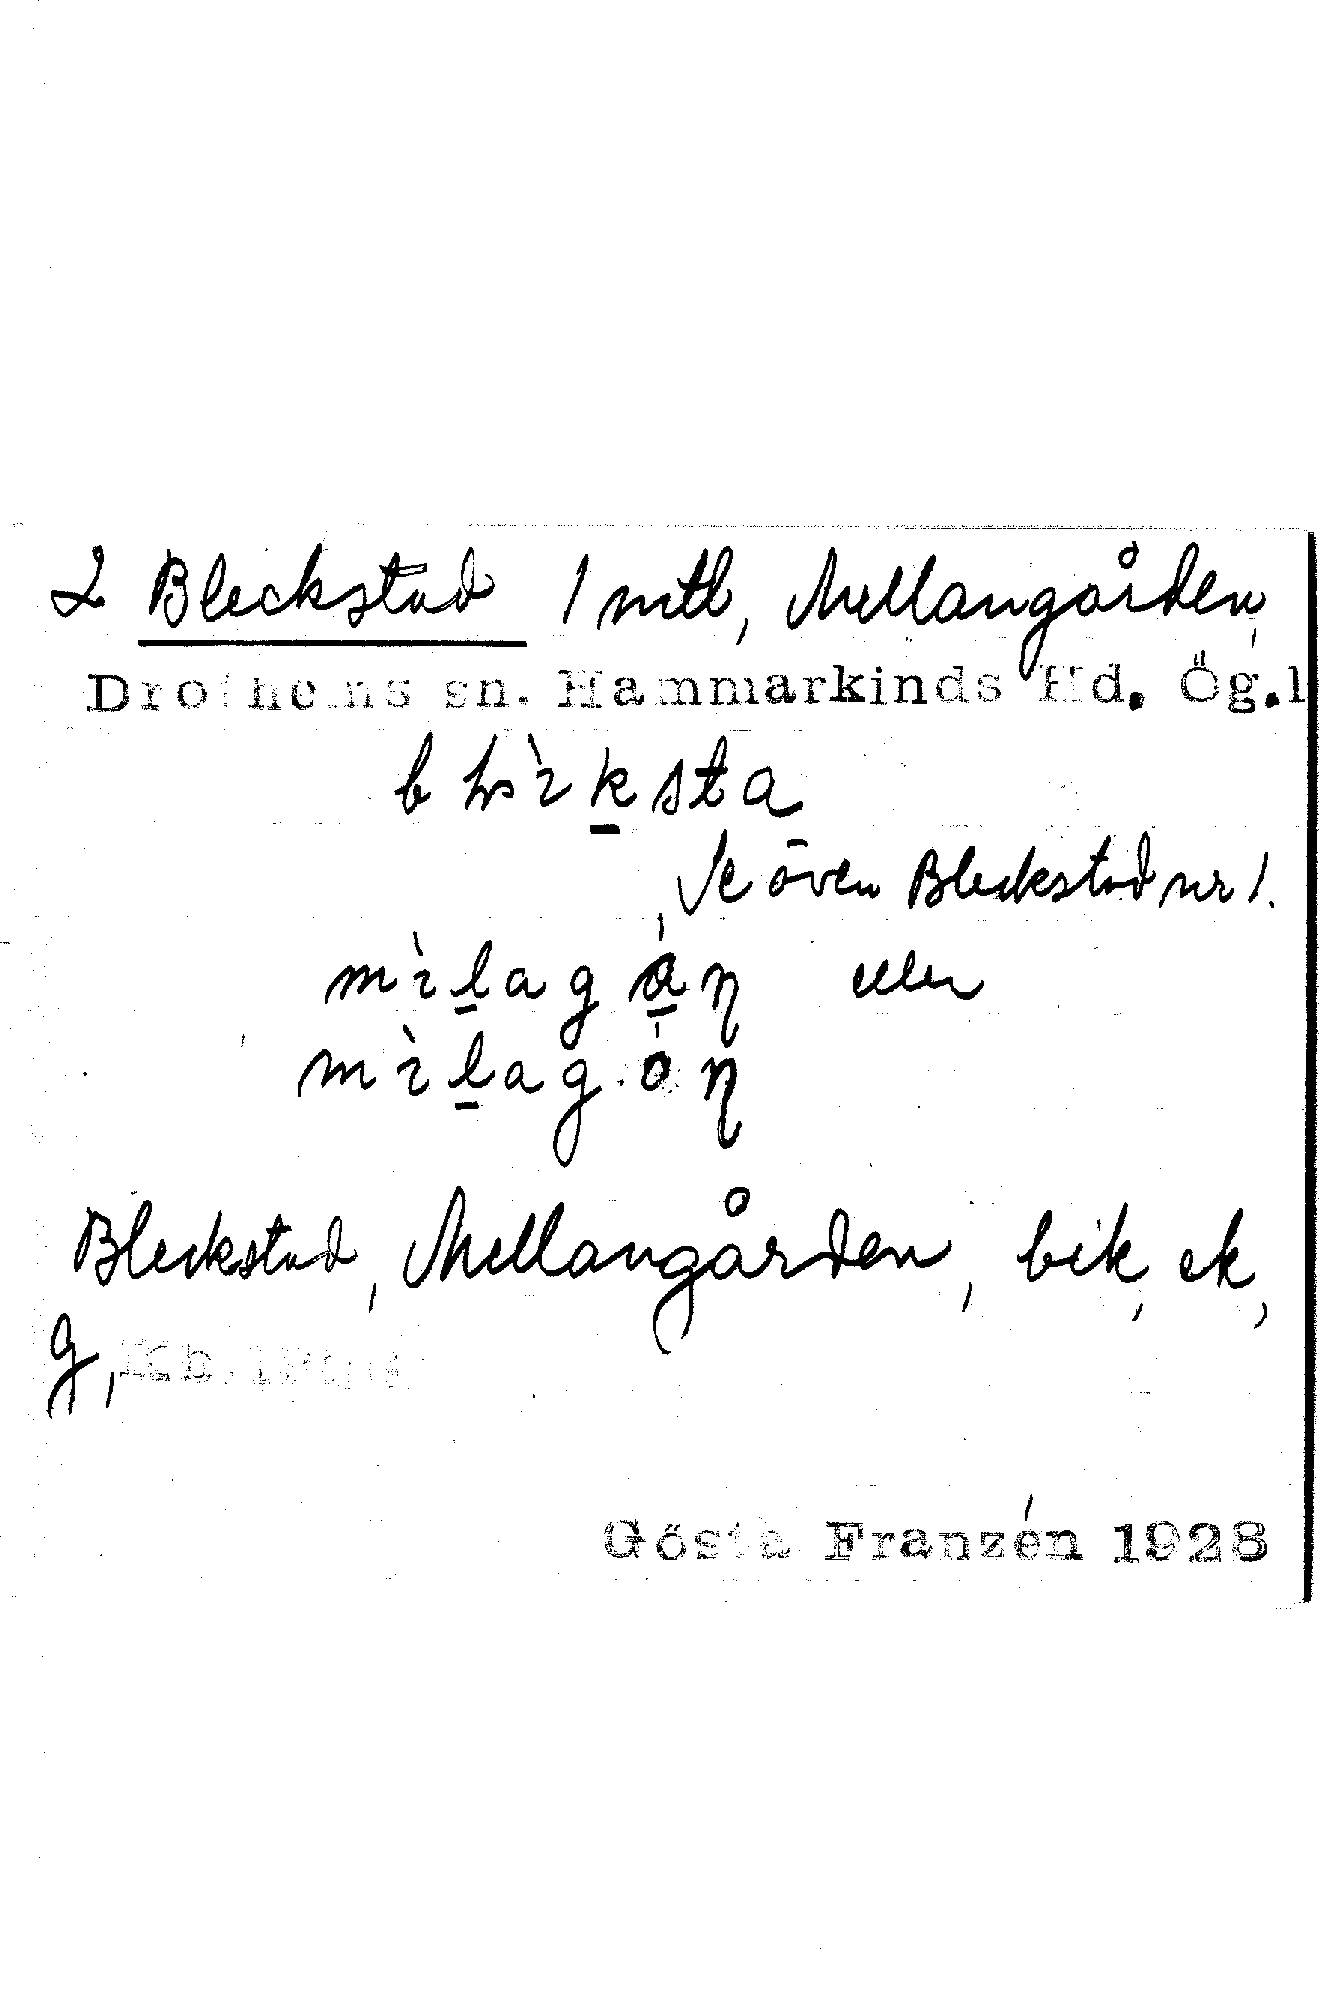 2 Bleckstad 1 mtl, Mellangården,
Drothems sn. Hammarkinds Hd. Ög.l
Se även Bleckstad nr 1.
mìlagán eller
mìlagón
Bleckstad, Mellangården, bik, ek,
g, Kb.
Gösta Franzén 1928